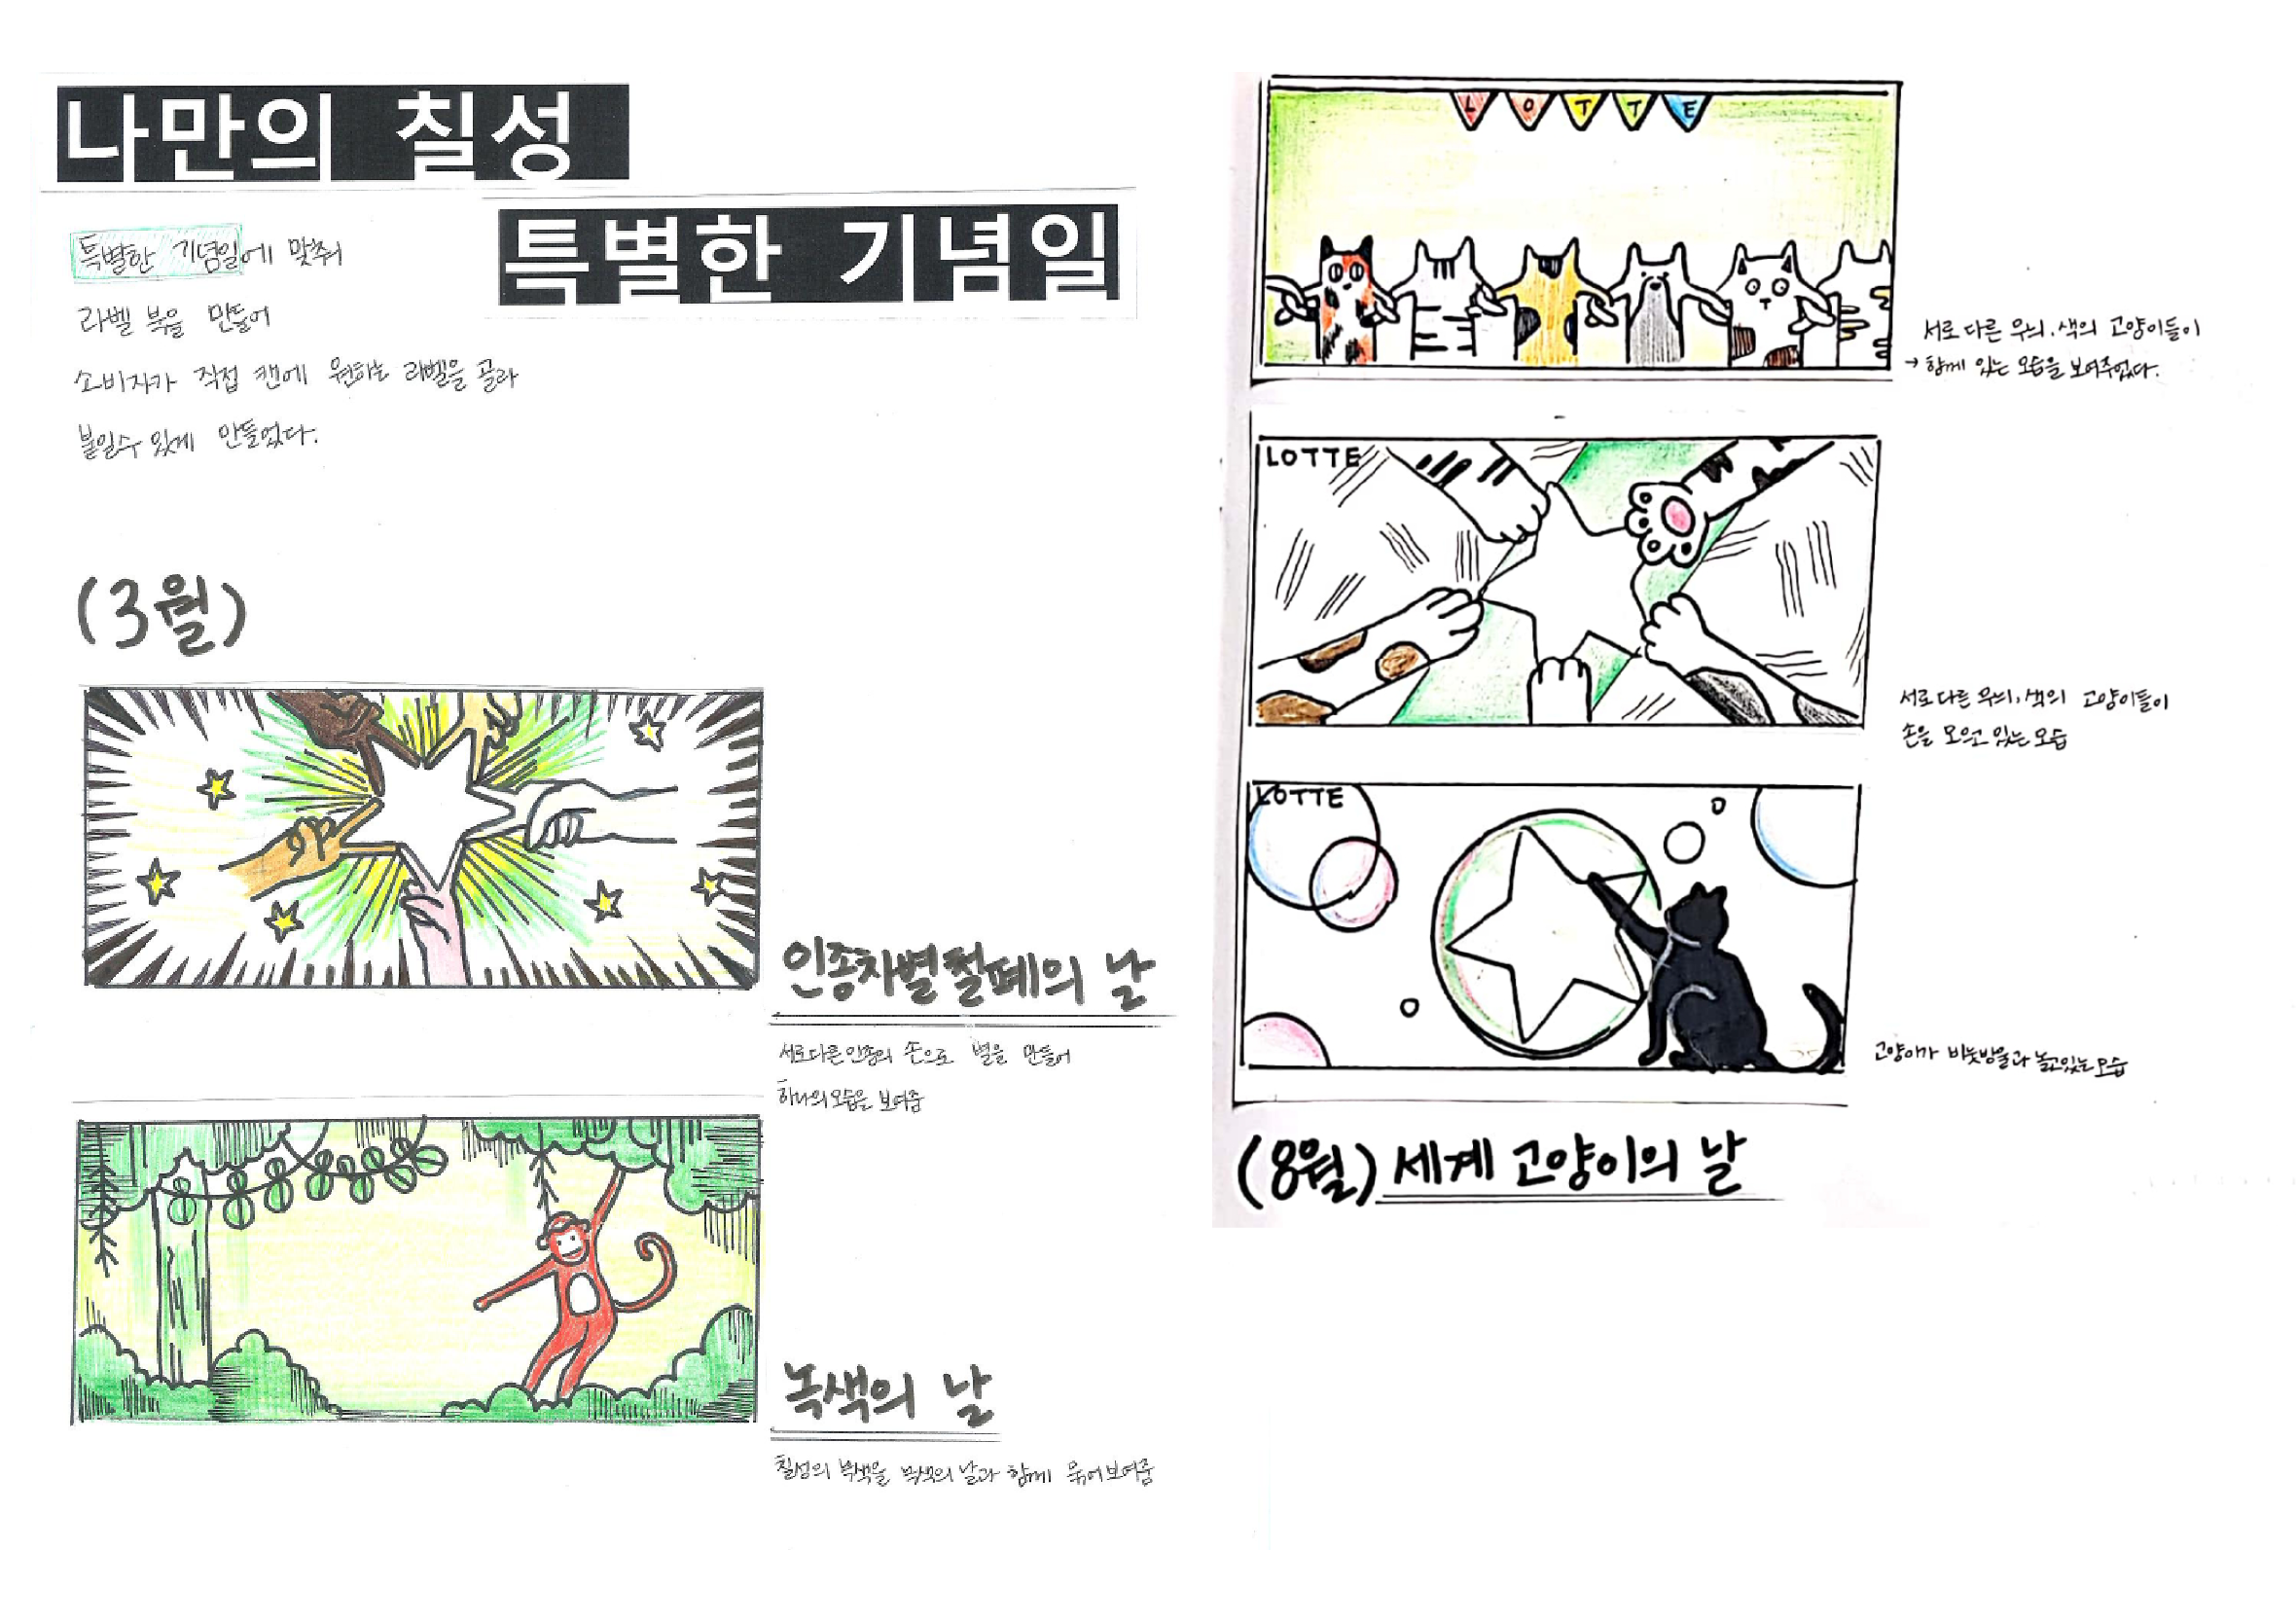 나만의 칠성
특별한 기념일
특별한 기념일에 맞춰
라벨 북을 만들어
소비자가 직접 캔에 원하는 라벨을 골라
붙일수 있게 만들었다.
(3월)
인종차별철폐의 날
서로다른인종의 손으로 별을 만들어
하나의모습을 보여줌
녹색의 날
칠성의 녹색을 녹색의 날과 함께 묶어보여줌
L O T T E
서로 다른 무늬, 색의 고양이들이
→ 함께 있는 모습을 보여주었다.
LOTTE
서로다른 무늬, 색의 고양이들이
손을 모으고 있는 모습
LOTTE
고양이가 비눗방울과 놀고있는 모습
(8월) 세계 고양이의 날